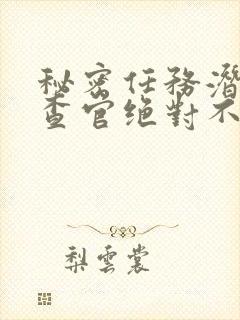 秘密任務潛
查官绝對不
梨雲裳